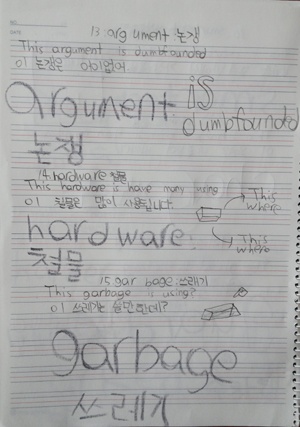 13 argument 논쟁
This argument is dumbfounded
이 논쟁은 어이없어
argument is
dumbfounded
논쟁
14 hardware 철물
This hardware is have many using
This
where
이 철물은 많이 사용됩니다.
hardware
This
where
철물
15 garbage:쓰레기
This garbage is using?
이 쓰레기는 쓸만한데?
garbage
쓰레기